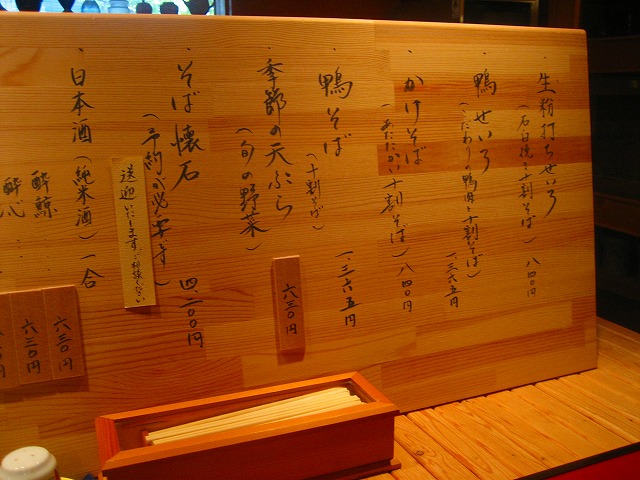 ・生粉打ちせいろ
(石臼挽き十割そば) 八四〇円
・鴨せいろ
(こだわりの鴨肉と十割そば) 一、三六五円
・かけそば
(あたたかい十割そば) 八四〇円
・鴨そば
(十割そば) 一、三六五円
・季節の天ぷら
(旬の野菜) 六三〇円
・そば懐石
(予約が必要です) 四、二〇〇円
送迎いたします。ご相談ください
・日本酒(純米酒) 一合
酔鯨 六三〇円
酔心 六三〇円